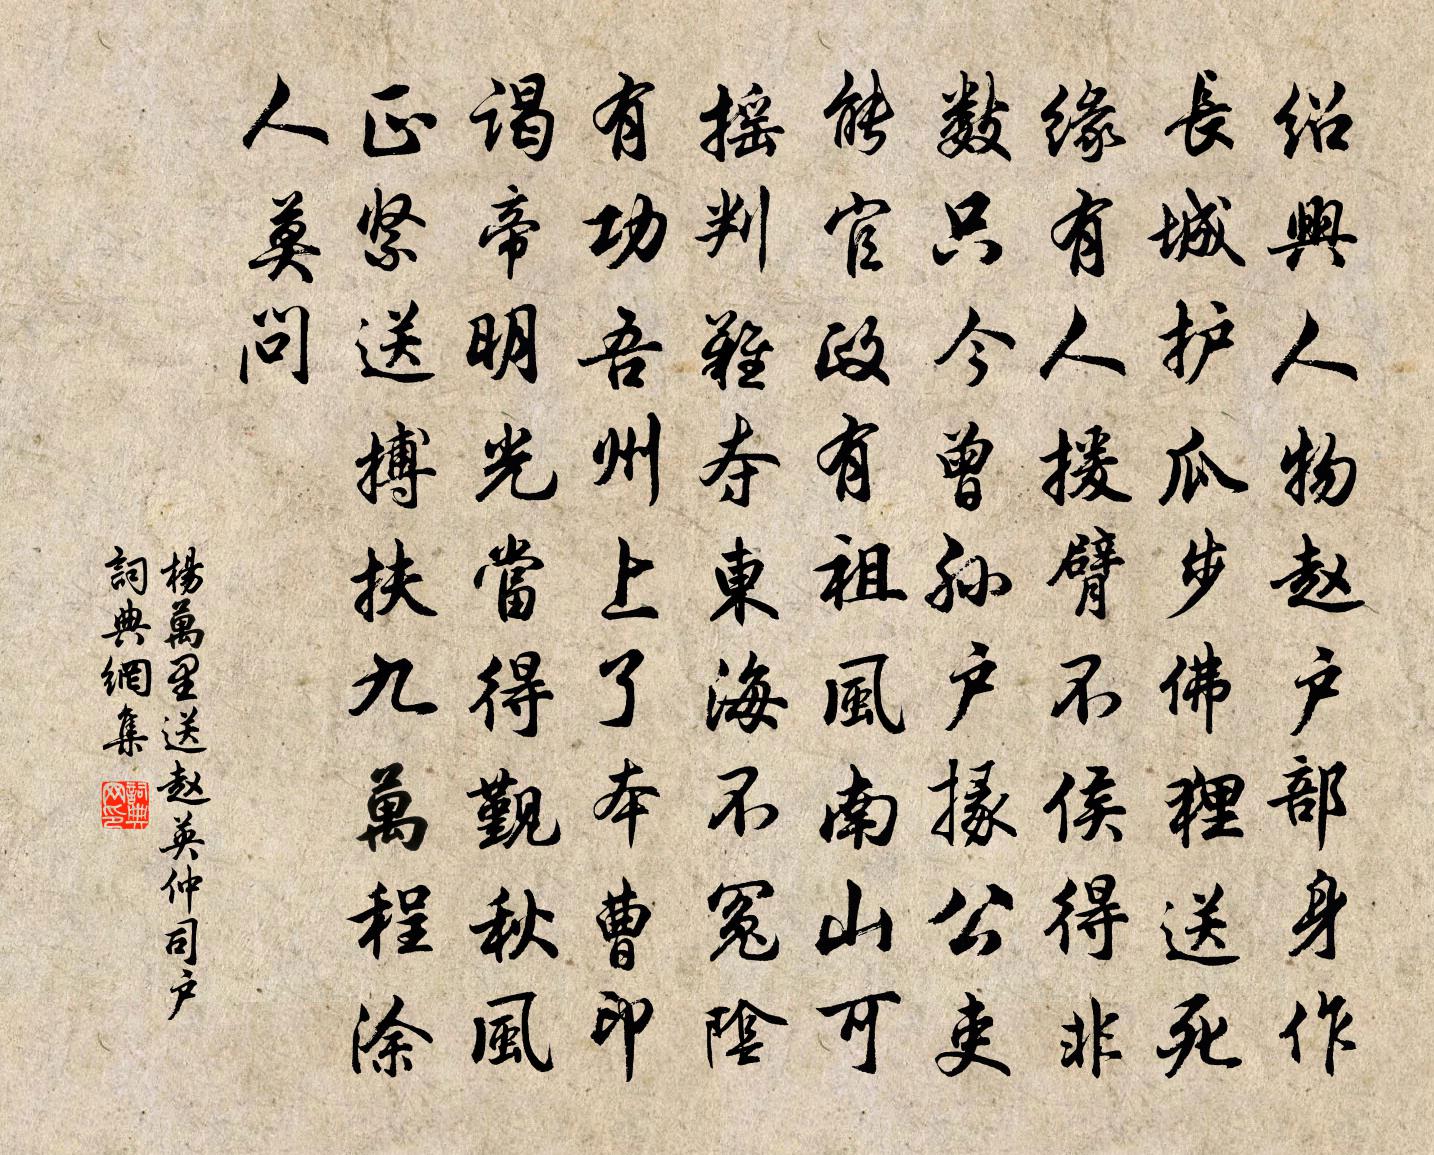 紹興人物赵户部身作
長城护瓜步佛狸送死
緣有人援臂不侯得非
数只今曾孙户掾公吏
能官政有祖風南山可
摇判難夺東海不冤陰
有功吾州上了本曹印
谒帝明光當得觐秋風
正紧送搏扶九萬程涂
人莫問
楊萬里送赵英仲司户
詞典網集
詞典网印